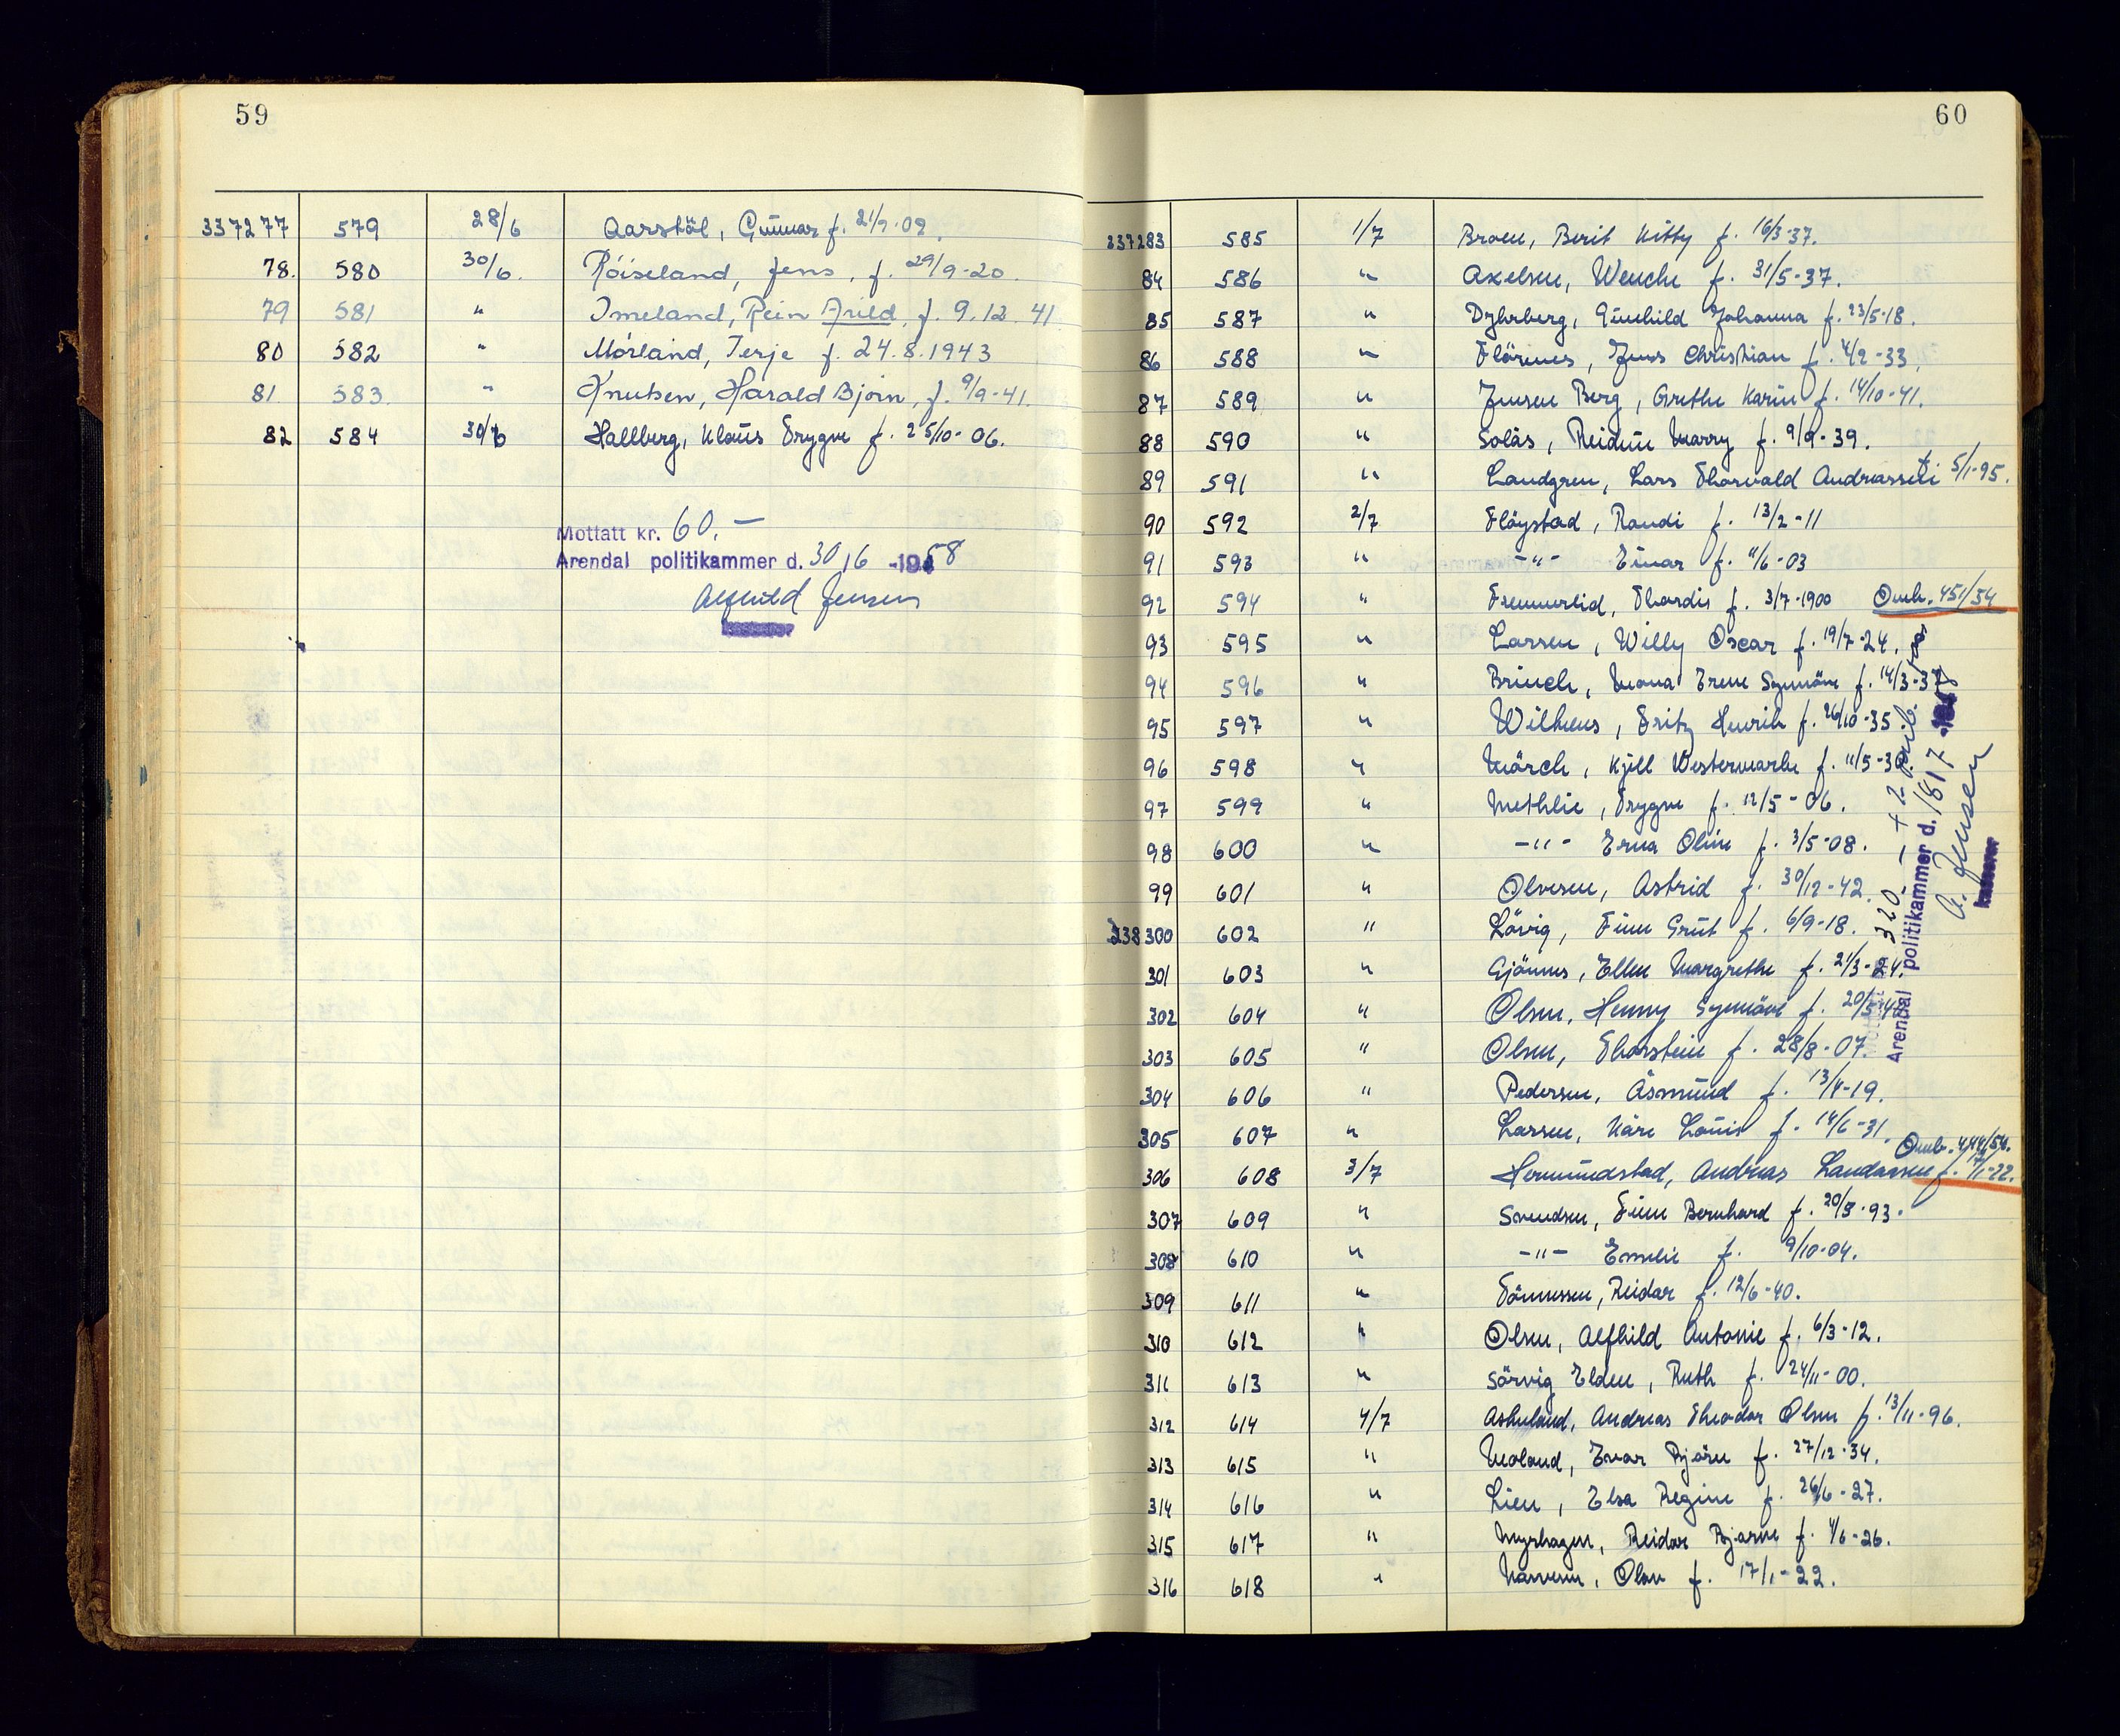 59
337277 579 28/6 Aarstöl, Gunnar f. 21/9-09.
78. 580 30/6. Röiseland, Jens, f. 29/9-20.
79 581 " Imeland, Rein Arild, f. 9.12.41
80 582 " Mörland, Terje f. 24.8.1943
81. 583. " Knutsen, Harald Bjørn, f. 9/9-41.
82 584 30/6 Hallberg, Klaus Trygve f. 25/10-06.
Mottatt kr. 60.-
Arendal politikammer d. 30/6 -1958
Alfhild Jensen
60
337283 585 1/7 Broen, Berit Kitty f. 16/3-37.
84 586 " Axelsen, Wenche f. 31/5-37.
85 587 " Dyhrberg, Gunhild Johanna f. 23/5-18.
86 588 " Flörenes, Jens Christian f. 4/2-33.
87 589 " Jensen Berg, Grethe Karin f. 14/10-41.
88 590 " Solås, Reidun Marry f. 9/9-39.
89 591 " Landgren, Lars Thorvald f. 5/1-95.
90 592 2/7 Flöystad, Randi f. 13/2-11
91 593 " -"- Einar f. 11/6-03
92 594 " Tremmerlid, Thordis f. 3/7-1900 Omb. 451/54
93 595 " Larsen, Willy Oscar f. 19/7-24.
94 596 " Brinch, Mona Irene Synnöve f. 14/3-37
95 597 " Wilhems, Fritz Henrik f. 26/10-35.
96 598 " Mörch, Kjell Westermarke f. 11/5-30.
97 599 " Methlie, Trygve f. 12/5-06.
98 600 " -"- Erna Oline f. 3/5-08.
99 601 " Olvesen, Astrid f. 30/12-42.
338300 602 " Lövig, Finn Grut f. 6/9-18.
301 603 " Gjönnes, Ellen Margrethe f. 21/3-24.
302 604 " Olsen, Henny Synnöve f. 20/5
303 605 " Olsen, Thorstein f. 28/8-07.
304 606 " Pedersen, Åsmund f. 13/4-19.
305 607 " Larsen, Kåre Louis f. 14/6-31.
Omb. 444/54.
306 608 3/7 Hermundstad, Andreas f. 17/1-22.
307 609 " Svendsen, Finn Bernhard f. 20/5-93.
308 610 " -"- Emelie f. 9/10-04.
309 611 " Tönnessen, Reidar f. 12/6-40.
310 612 " Olsen, Alfhild Antonie f. 6/3-12.
311 613 " Sörvig Elden, Ruth f. 24/11-00.
312 614 4/7 Askeland, Andreas Theodor Olsen f. 13/11-96.
313 615 " Moland, Ivar Björn f. 27/12-34.
314 616 " Lien, Elsa Regine f. 26/6-27.
315 617 " Myrhagen, Reidar Bjarne f. 4/6-26.
316 618 " Olav f. 17/1-22.
320.- + 2
Arendal politikammer d. 18/7
A. Jensen